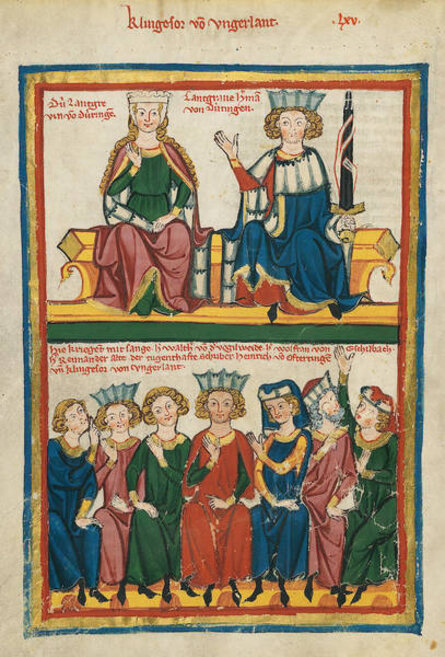 Klingesor võ vngerlant.
.lxv.
Dú Lantgre
vin võ Dúringẽ.
Lantgraue h'mã
von Dúringen.
Hie kriegent mit sange. h' walth' võ d' vogilweide. h' wolfran von Eschilbach.
h' Reinmar der alte. der tugenthafte schriber. Heinrich võ Ofteringen.
vñ klingesor von vngerlant.